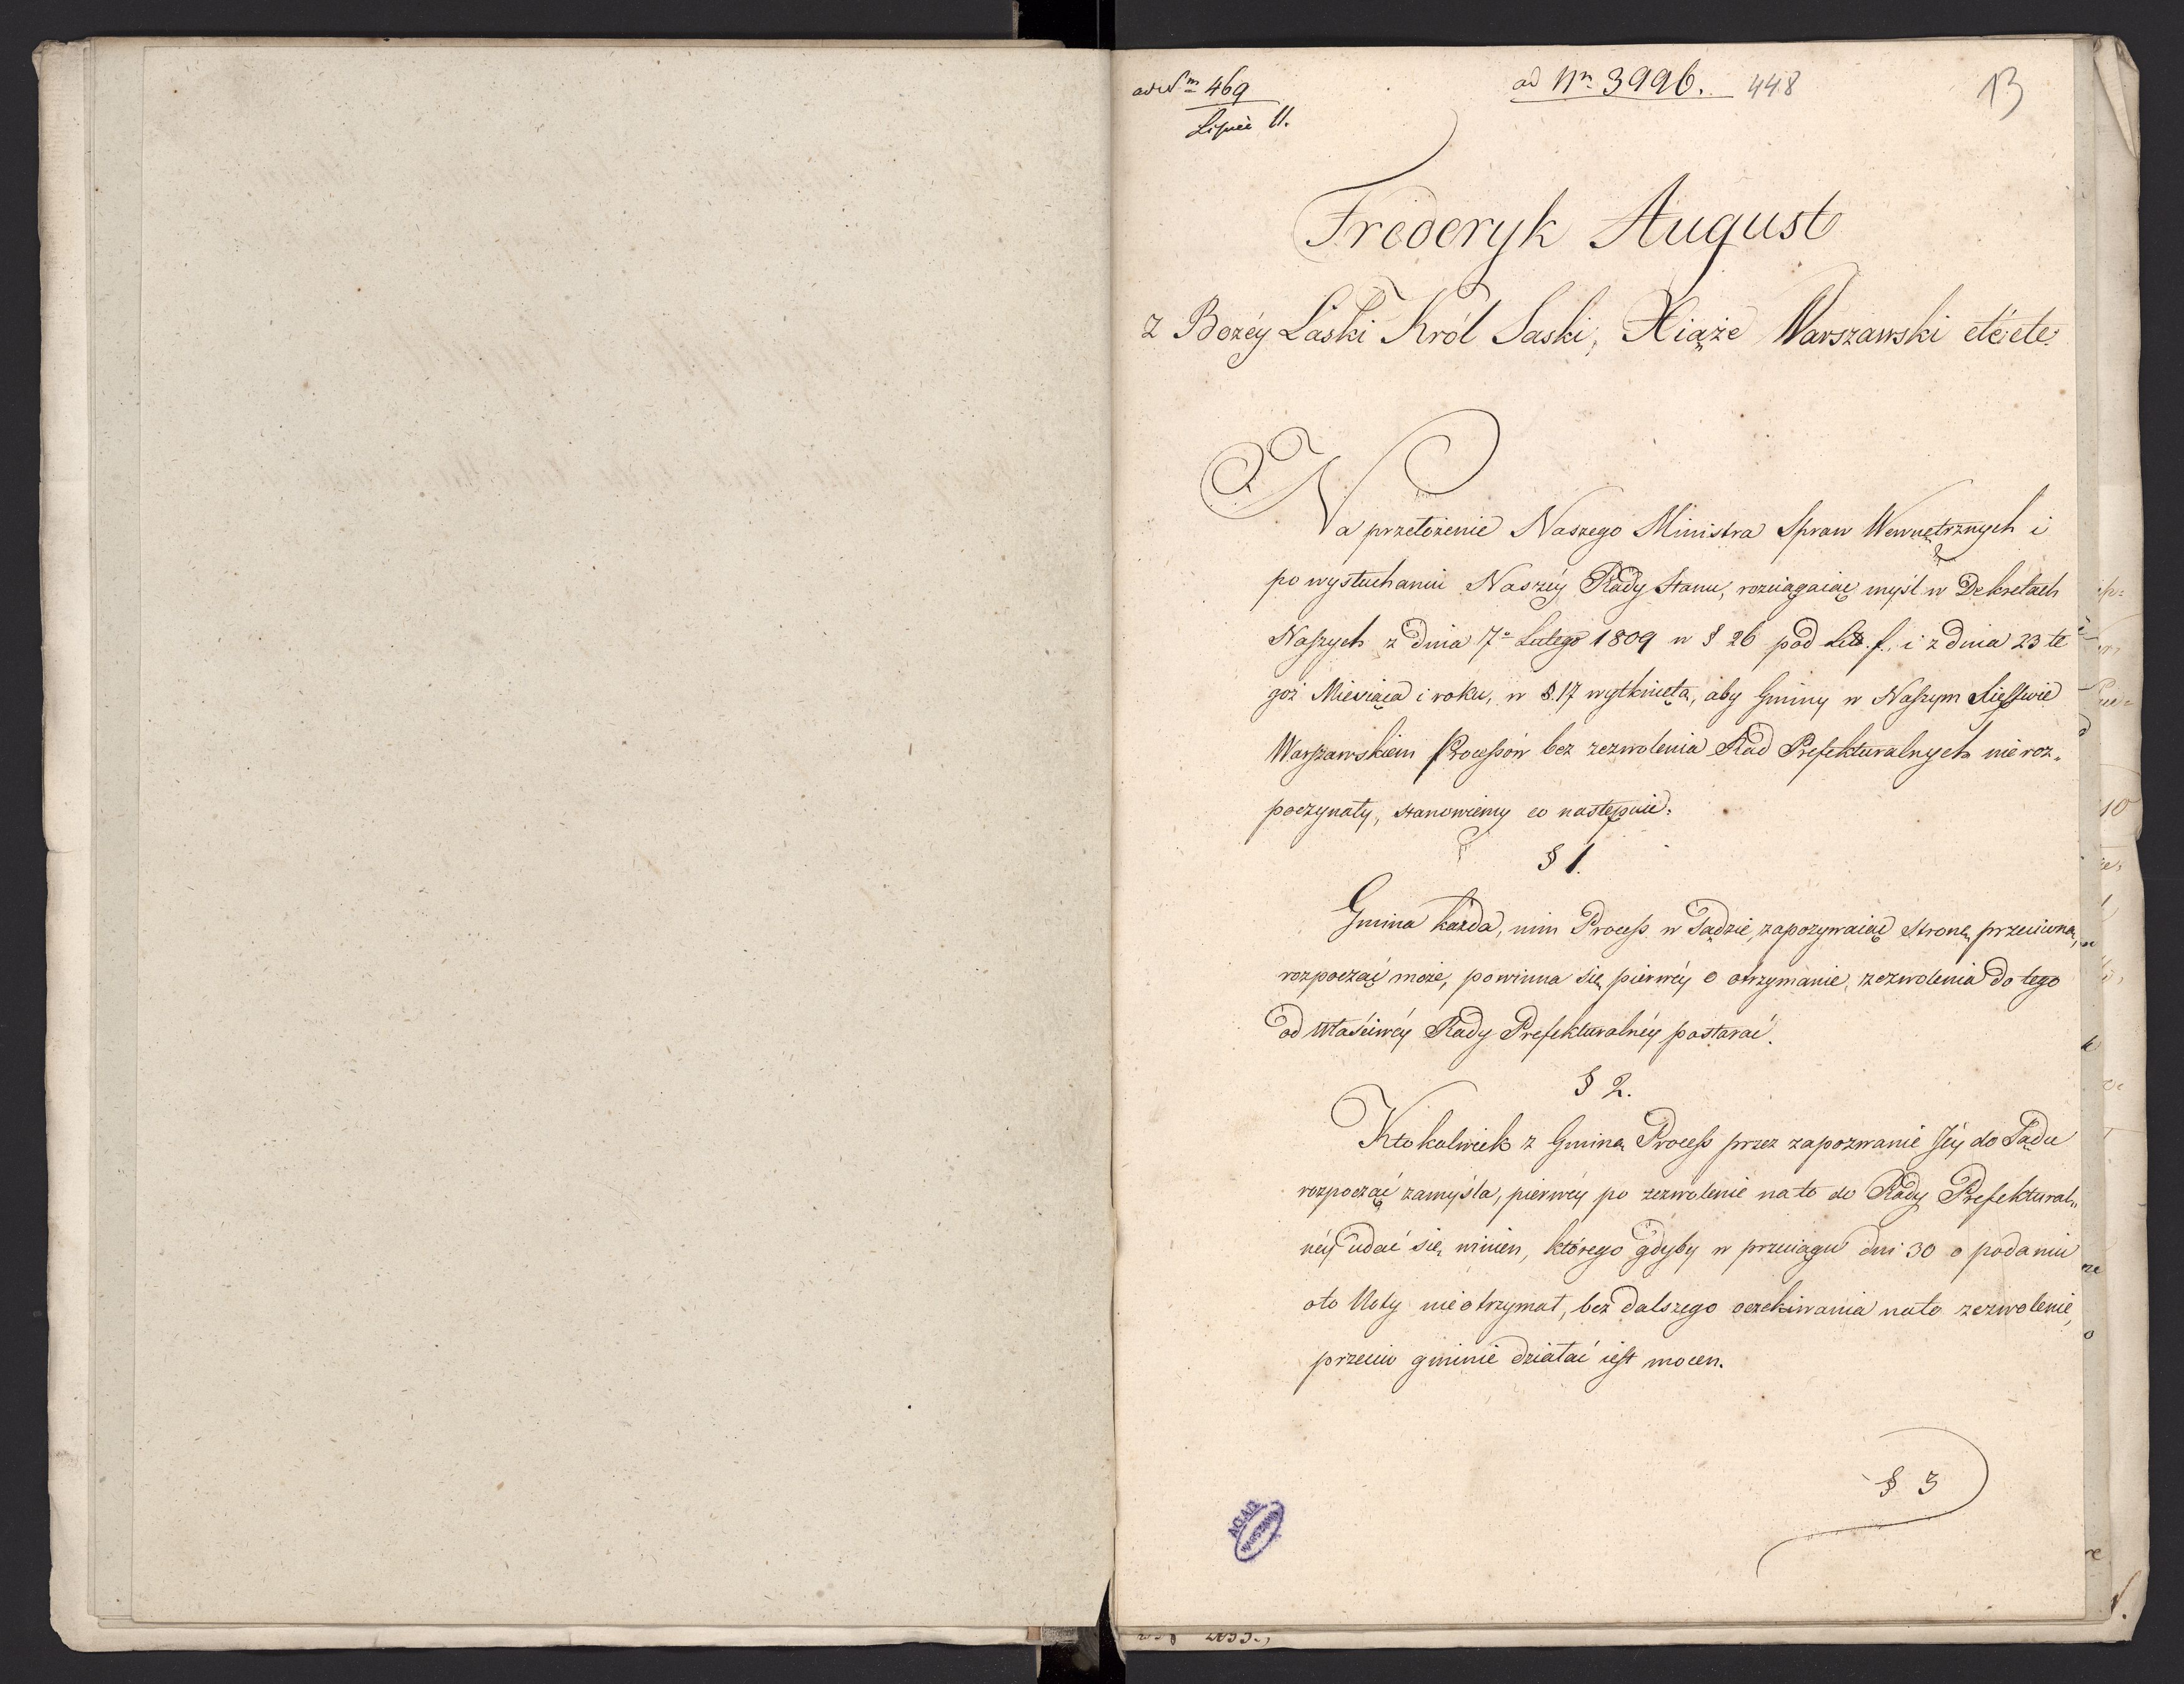 ad Nm 469
Lipiec 11.
ad Nr 3996. 448
13
Frederyk August
z Bożéy Łaski Król Saski, Xiąże Warszawski etc: etc:
Na przełożenie Naszego Ministra Spraw Wewnętrznych i
po wysłuchaniu Naszéy Rady Stanu, rozciągaiąc myśl w Dekretach
Naszych z dnia 7o Lutego 1809 w § 26 pod Litt. f. i z dnia 23 te
goż Miesiąca i roku, w §. 17 wytkniętą, aby Gminy w Naszym Xięstwie
Warszawskiem Processów bez zezwolenia Rad Prefekturalnych nie roz„
poczynały, stanowiemy co następuie:
§ 1.
Gmina każda, nim Process w Sądzie, zapozywaiąc stronę przeciwną,
rozpocząć może, powinna się pierwéy o otrzymanie zezwolenia do tego
od właściwéy Rady Prefekturalnéy postarać.
§ 2.
Ktokolwiek z Gminą Process przez zapozwanie Jéy do Sądu
rozpocząć zamyśla, pierwéy po zezwolenie na to do Rady Prefektural„
néy udać się winien, którego gdyby w przeciągu dni 30 o podaniu
oto Noty nie otrzymał, bez dalszego oczekiwania na to zezwolenie,
przeciw gminie działać iest mocen.
§ 3
AGAD
WARSZAWA